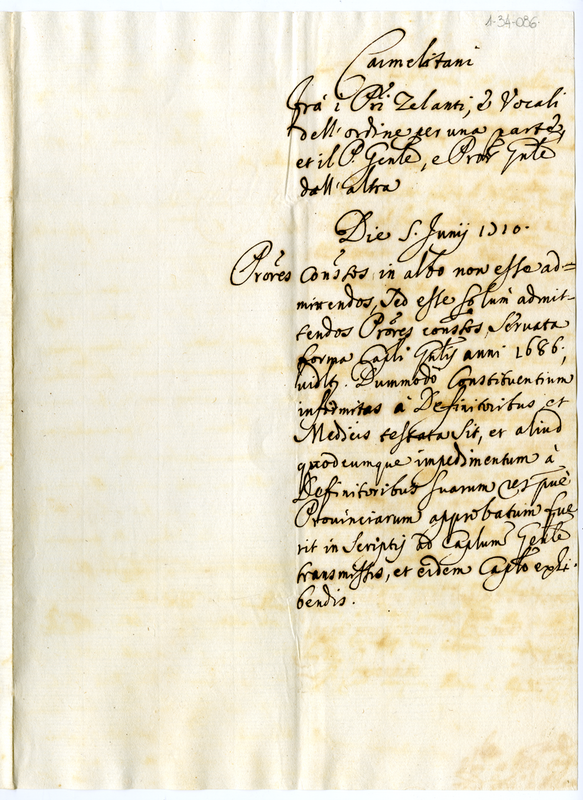 1-34-086.
Carmelitani
frà i PP.ri Zelanti, e Vocali
dell'ordine per una parte,
et il P. Gen̄le, e Pror Gn̄le
dall'altra
Die 5. Junij 1710.
Prores Constos in albo non esse ad=
mittendos, sed esse solum admit=
tendos Prores constos, servata
forma Capli Gn̄lis anni 1686,
vidlt. Dummodò Constituentium
infirmitas à Definitoribus et
Medicis testata sit, et aliud
quodcunque impedimentum à
Definitoribus suarum respue
Provinciarum approbatum fue
rit in scriptis ad Caplum Gen̄le
transmissis, et eidem Caplo exhi=
bendis.